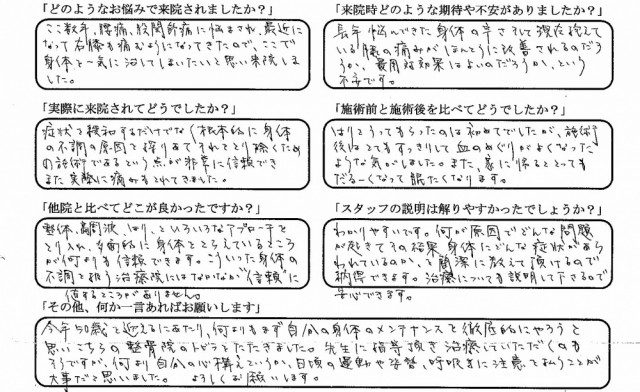 「どのようなお悩みで来院されましたか？」
ここ数年、腰痛、股関節痛に悩まされ、最近に
なって右膝も痛むようになってきたので、ここで
身体を一気に治してしまいたいと思い来院しま
した。
「来院時どのような期待や不安がありましたか？」
長年悩んできた身体の辛さそして現在抱えて
いる膝の痛みがほんとうに改善されるのだろ
うか、費用対効果はよいのだろうか、という
不安です。
「実際に来院されてどうでしたか？」
症状を緩和するだけでなく根本的に身体
の不調の原因を探りあてそれをとり除くため
の施術であるという点が非常に信頼でき
また実際に痛みもとれてきました。
「施術前と施術後を比べてどうでしたか？」
はりをうってもらったのは初めてでしたが、施術
後はとてもすっきりして血のめぐりがよくなった
ような気がしました。また、家に帰るととても
だるーくなって眠たくなります。
「他院と比べてどこが良かったですか？」
整体、高周波、はり、といろいろなアプローチを
とり入れ、多面的に身体をとらえているところ
が何よりも信頼できます。こういった身体の
不調を扱う治療院にはなかなか“信頼”に
値するところがありません。
「スタッフの説明は解りやすかったでしょうか？」
わかりやすいです。何が原因でどんな問題
が起きてその結果身体にどんな症状があら
われているのか、を簡潔に教えて頂けるので
納得できます。治療についても説明して下さるので
安心できます。
「その他、何か一言あればお願いします」
今年50歳を迎えるにあたり、何よりもまず自分の身体のメンテナンスを徹底的にやろうと
思いこちらの整骨院のドアをたたきました。先生に指導頂き治療していただくのも
そうですが、何より自分の心構えというか、日頃の運動や姿勢、呼吸等に注意を払うことが
大事だと思いました。よろしくお願いします。